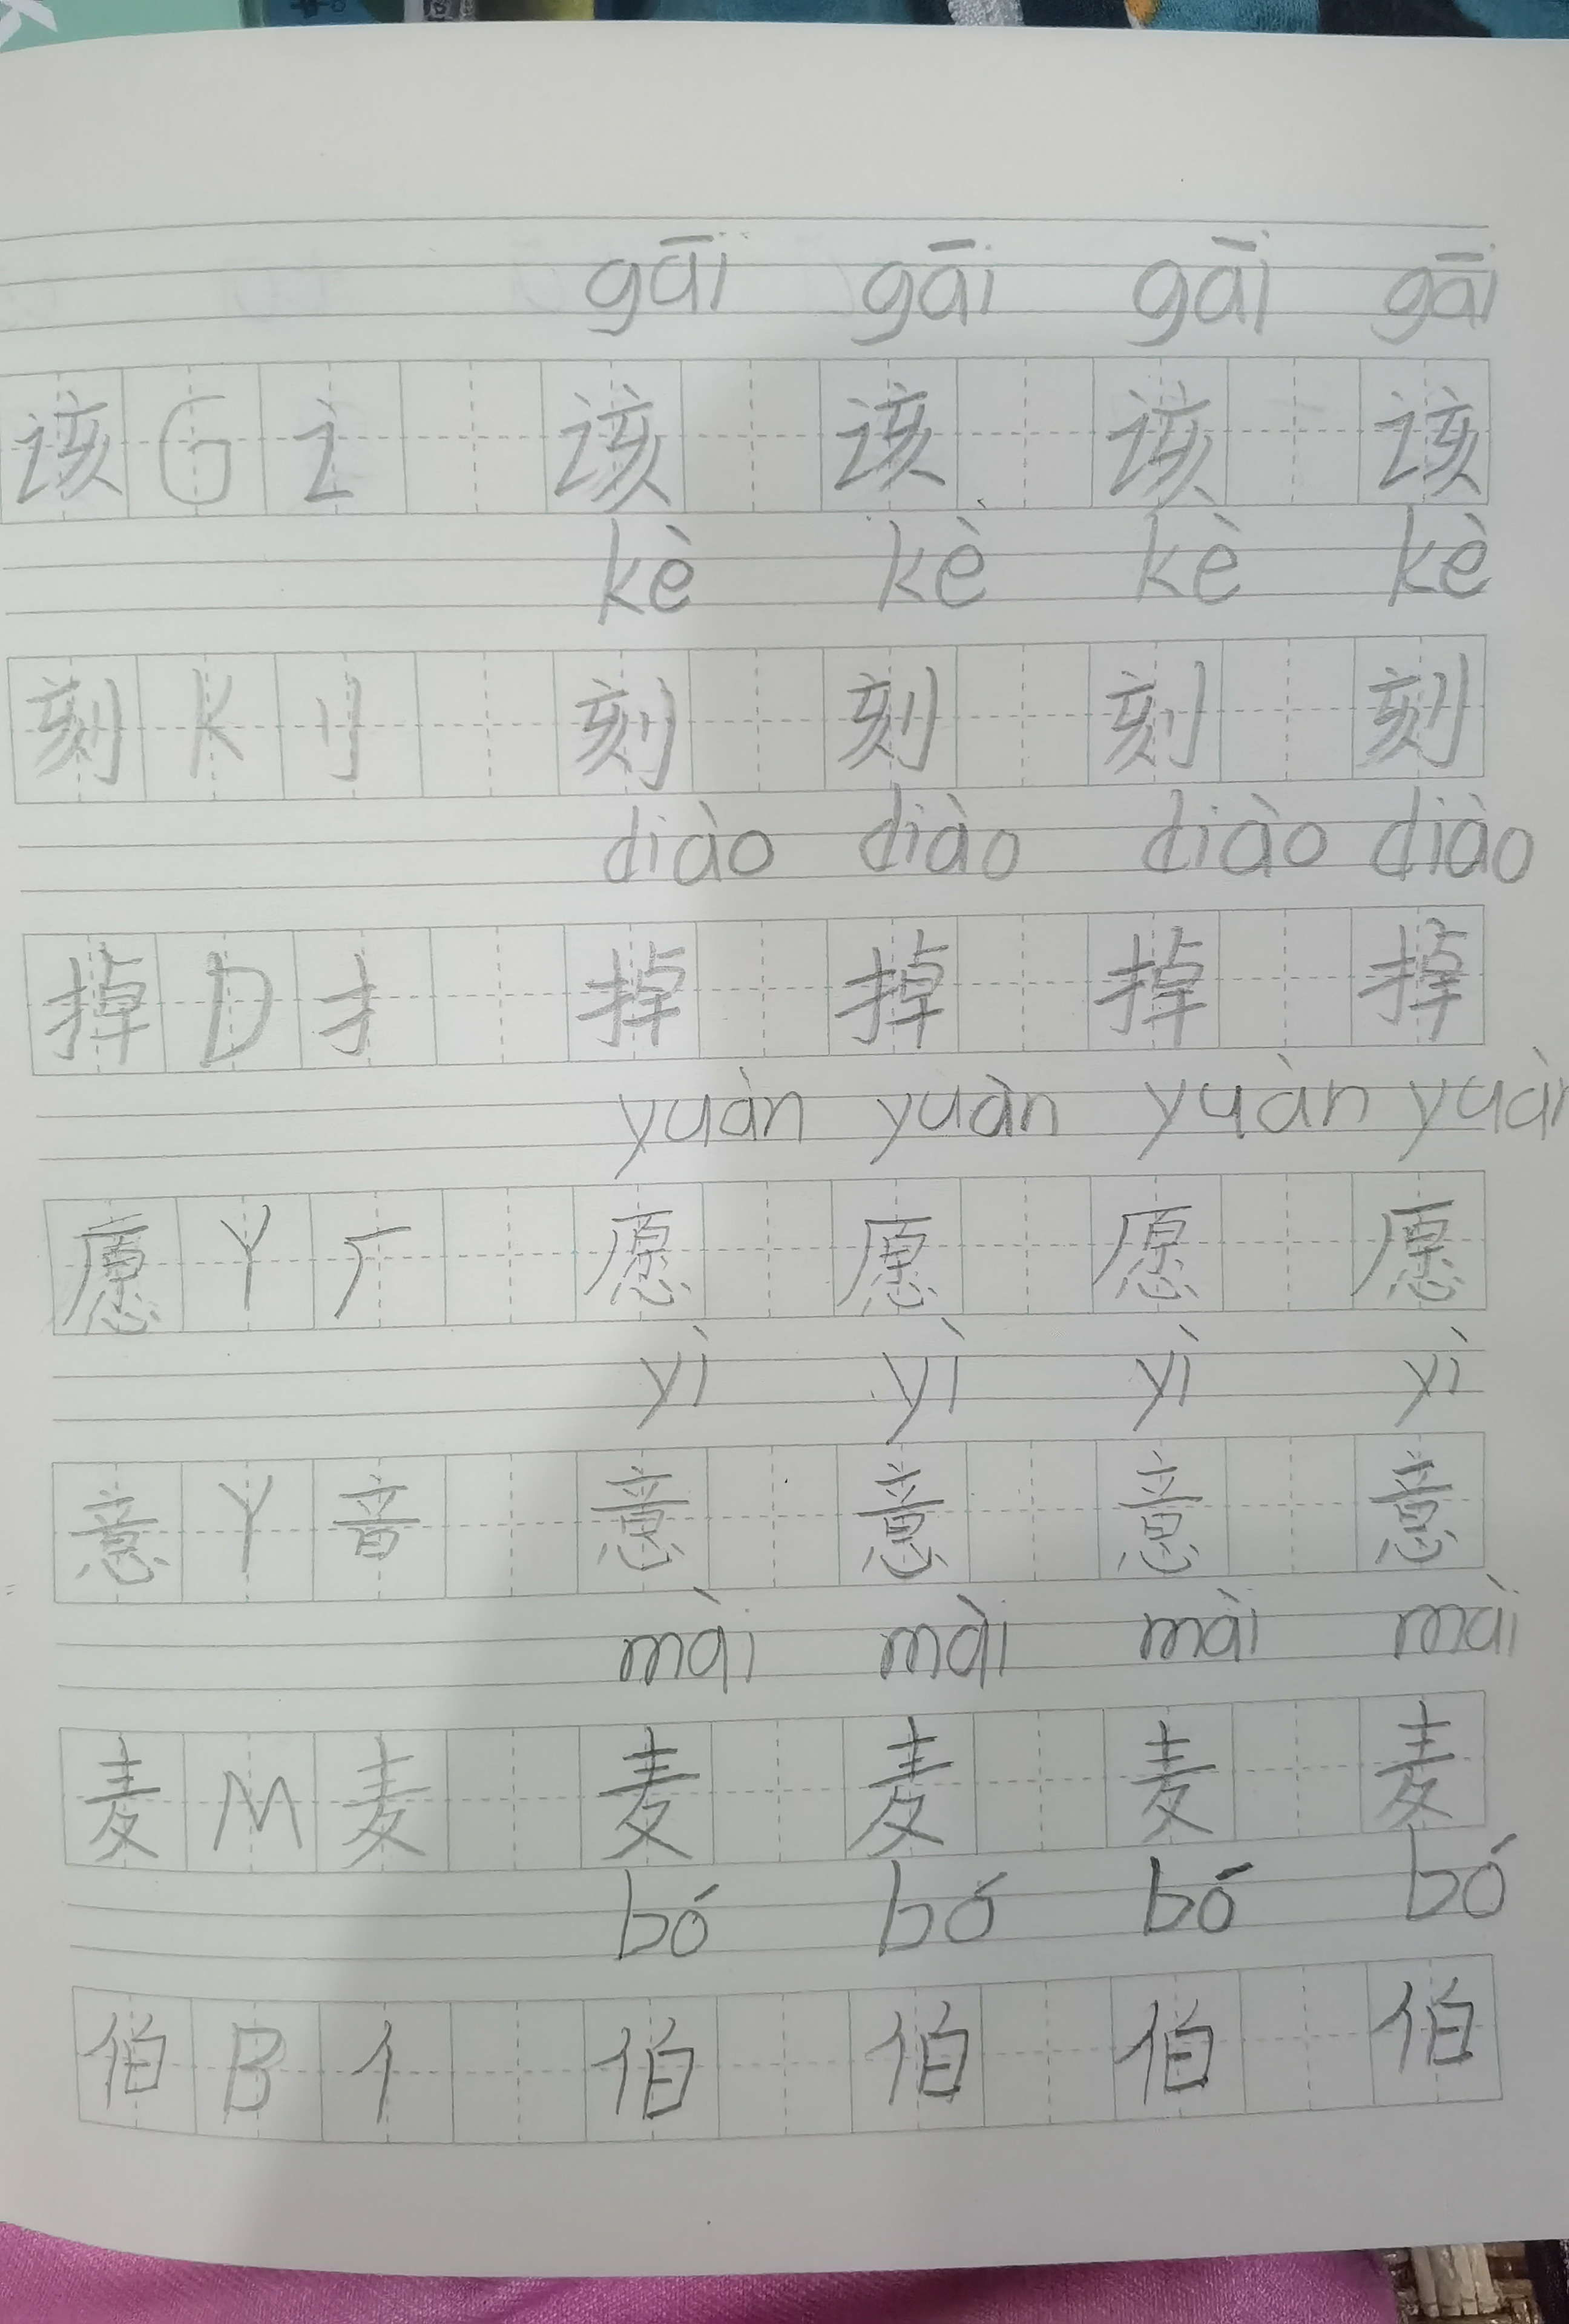 gāi gāi gāi gāi
该 G 讠 该 该 该 该
kè kè kè kè
刻 K 刂 刻 刻 刻 刻
diào diào diào diào
掉 D 扌 掉 掉 掉 掉
yuàn yuàn yuàn yuàn
愿 Y 厂 愿 愿 愿 愿
yì yì yì yì
意 Y 音 意 意 意 意
mài mài mài mài
麦 M 麦 麦 麦 麦 麦
bó bó bó bó
伯 B 亻 伯 伯 伯 伯